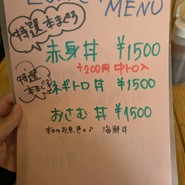 MENU
特選 本まぐろ
赤身丼 ¥1500
+200円 中トロ入
特選 本まぐろ
ネギトロ丼 ¥1500
おさむ丼 ¥1500
海鮮丼